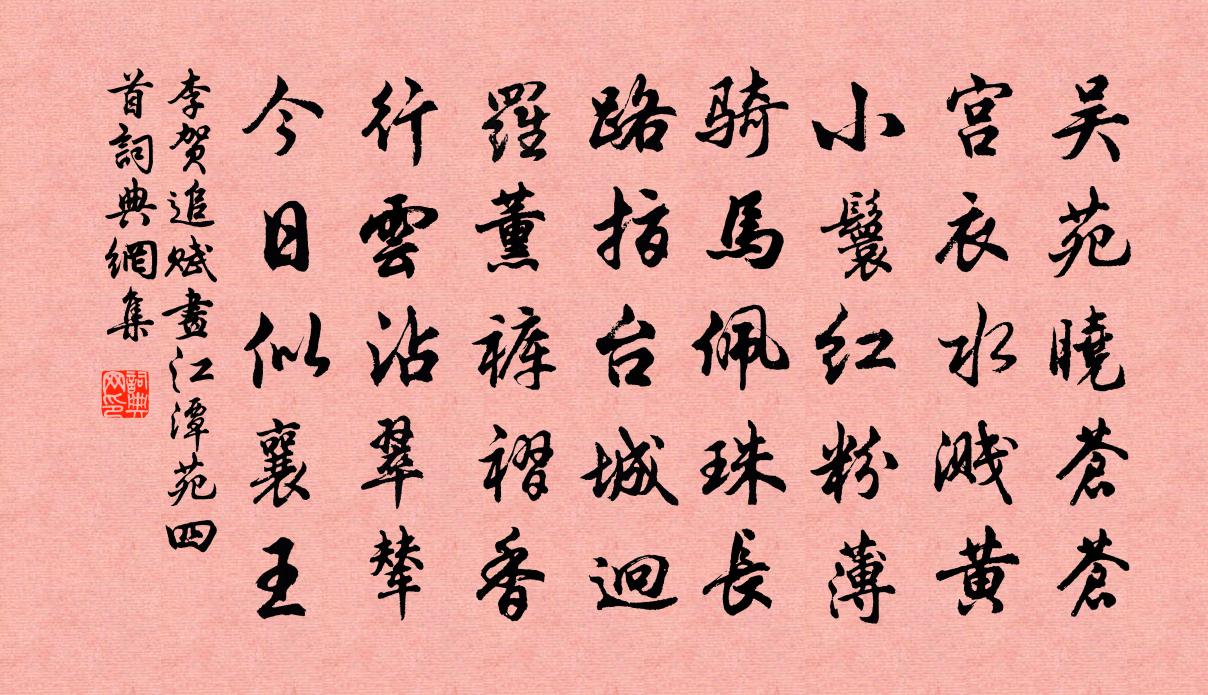 吴苑曉蒼蒼
宫衣水濺黄
小鬟红粉薄
騎馬佩珠長
路指台城迥
羅薰裤褶香
行雲沾翠輦
今日似襄王
李贺追赋畫江潭苑四
首詞典網集
詞典网印